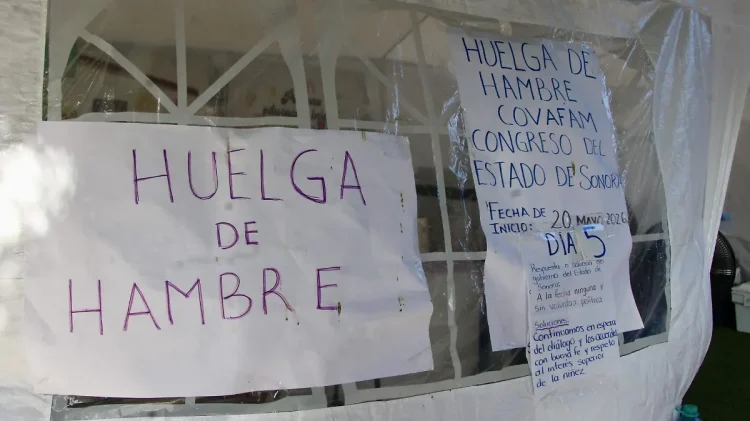 HUELGA
DE
HAMBRE
HUELGA DE
HAMBRE
COVAFAM
CONGRESO DEL
ESTADO DE SONORA
FECHA DE
INICIO: 20 MAYO 2026
DÍA 5
Respuesta o
gobierno del Estado de
Sonora:
A la fecha ninguna y
sin voluntad política
Soluciones:
Continuamos en espera
del diálogo y los acuerdos
con buena fe y respeto
al interés superior
de la niñez